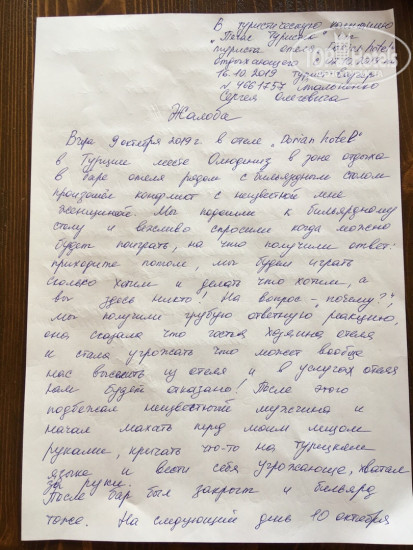 В туристическую компанию
"Пегас Туристик" от
туриста отеля
отдыхающего
16.10.2019
N. 4061757
Сергея Олеговича
Жалоба
Вчра 9 октября 2019 г в отеле „Dorian hotel"
в Турции месте Олюдениз в зоне отдыха
в баре отеля рядом с бильярдным столом
произошёл конфликт с неизвестной мне
женщиной. Мы подошли к бильярдному
столу и вежливо спросили когда можно
будет поиграть, на что получили ответ:
приходите потом, мы будем играть
сколько хотим и делать что хотим, а
вы здесь никто! На вопрос „почему?",
мы получили грубую ответную реакцию,
она сказала что гостья хозяина отеля
и стала угрожать что может вообще
нас выселить из отеля и в услугах отеля
нам будет отказано! После этого
подбежал неизвестный мужчина и
начал махать перед моим лицом
руками, кричать что-то на турецком
языке и вести себя угрожающе, хватал
за руки.
После бар был закрыт и бильярд
тоже. На следующий день 10 октября